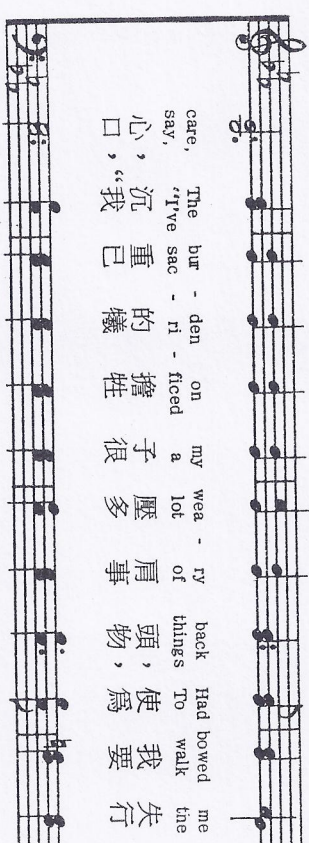 care, The bur - den on my wea - ry back Had bowed me
say, "I've sac - ri - ficed a lot of things To walk the
心，沉重的擔子壓肩頭，使我失
口，“我已犧牲很多事物，爲要行